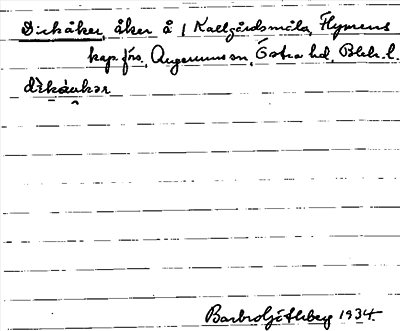 Dikåker, åker å 1 Kallgårdsmåla, Flymens
kap.förs. Augerums sn, Östra hd, Blek. l.
dikåukər
Barbro 1934